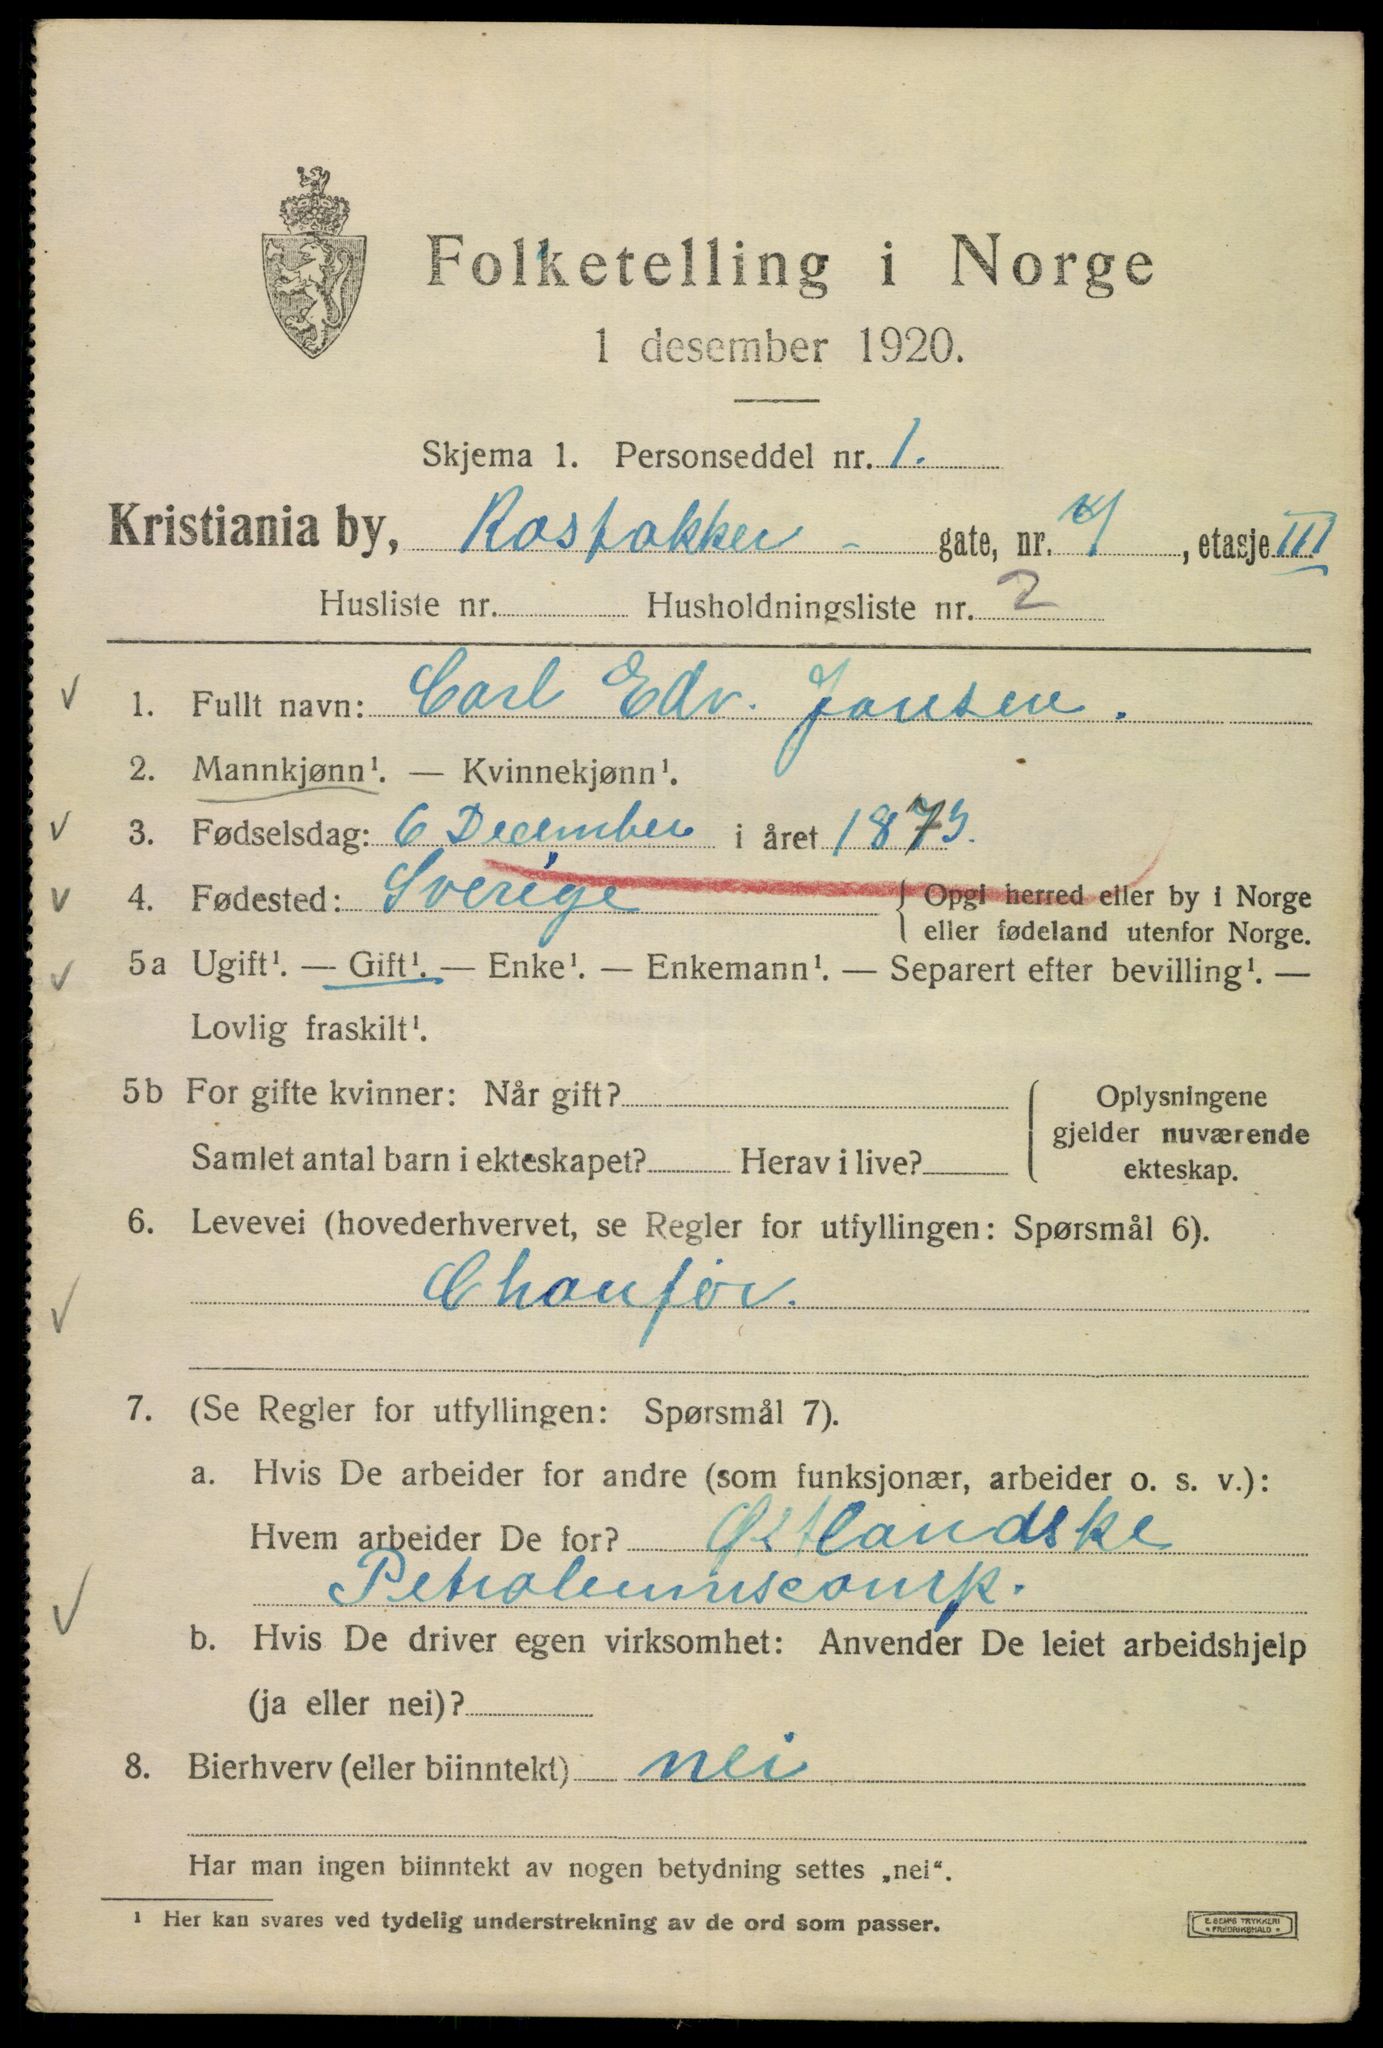 Folketelling i Norge
1 desember 1920.
Skjema 1. Personseddel nr. 1.
Kristiania by, Rostokker - gate, nr. 4, etasje III
Husliste nr. Husholdningsliste nr. 2
1. Fullt navn: Carl Edv. Jansen.
2. Mannkjønn¹. — Kvinnekjønn¹.
3. Fødselsdag: 6 December i året 1873.
4. Fødested: Sverige { Opgi herred eller by i Norge
eller fødeland utenfor Norge.
5a Ugift¹. — Gift¹. — Enke¹. — Enkemann¹. — Separert efter bevilling¹. —
Lovlig fraskilt¹.
5b For gifte kvinner: Når gift? Oplysningene
gjelder nuværende
Samlet antal barn i ekteskapet? Herav i live? ekteskap.
6. Levevei (hovederhvervet, se Regler for utfyllingen: Spørsmål 6).
Chauför.
7. (Se Regler for utfyllingen: Spørsmål 7).
a. Hvis De arbeider for andre (som funksjonær, arbeider o. s. v.):
Hvem arbeider De for? Østlandske
Petroleumscomp.
b. Hvis De driver egen virksomhet: Anvender De leiet arbeidshjelp
(ja eller nei)?
8. Bierhverv (eller biinntekt) nei
Har man ingen biinntekt av nogen betydning settes „nei“.
¹ Her kan svares ved tydelig understrekning av de ord som passer.
E. SEM'S TRYKKERI
* FREDRIKSHALD *